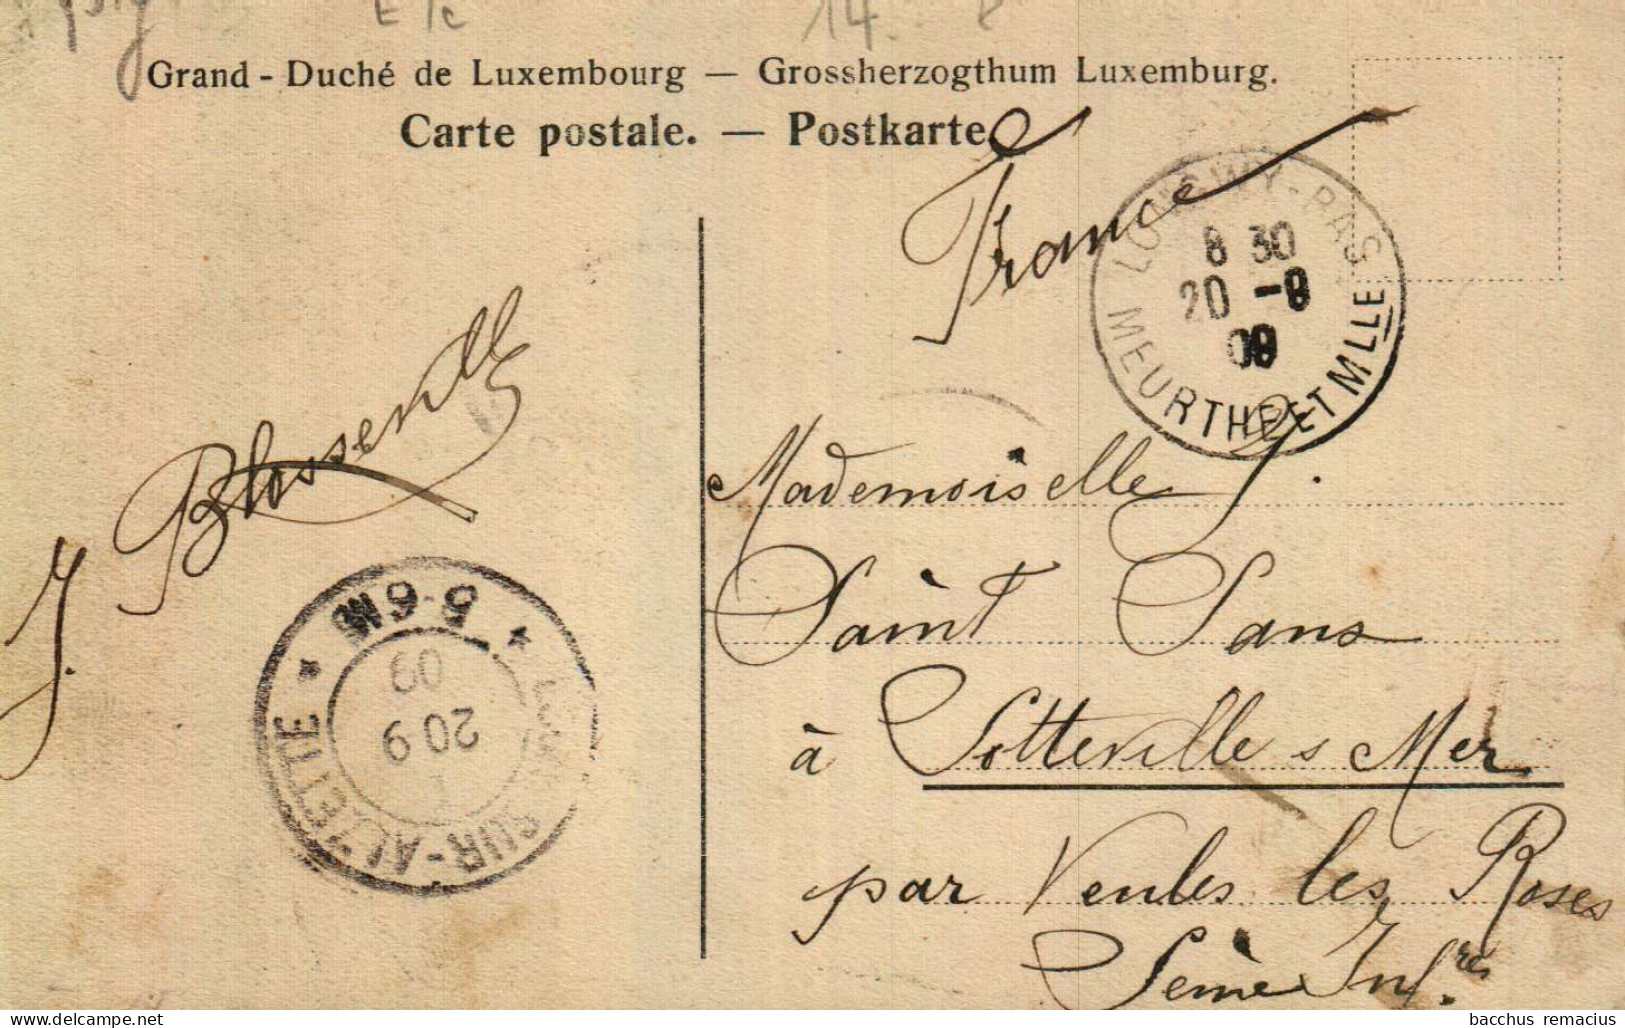 Grand - Duché de Luxembourg — Grossherzogthum Luxemburg.
Carte postale. — Postkarte.
France
LONGWY-BAS
8 30
20 -9
09
MEURTHE ET MLLE
J. Blossendt
Mademoiselle J.
Saint Sans
à Sotteville s Mer
par Veules les Roses
Seine Infres
5-6
09
20 9
SUR-ALZETTE
bacchus remacius